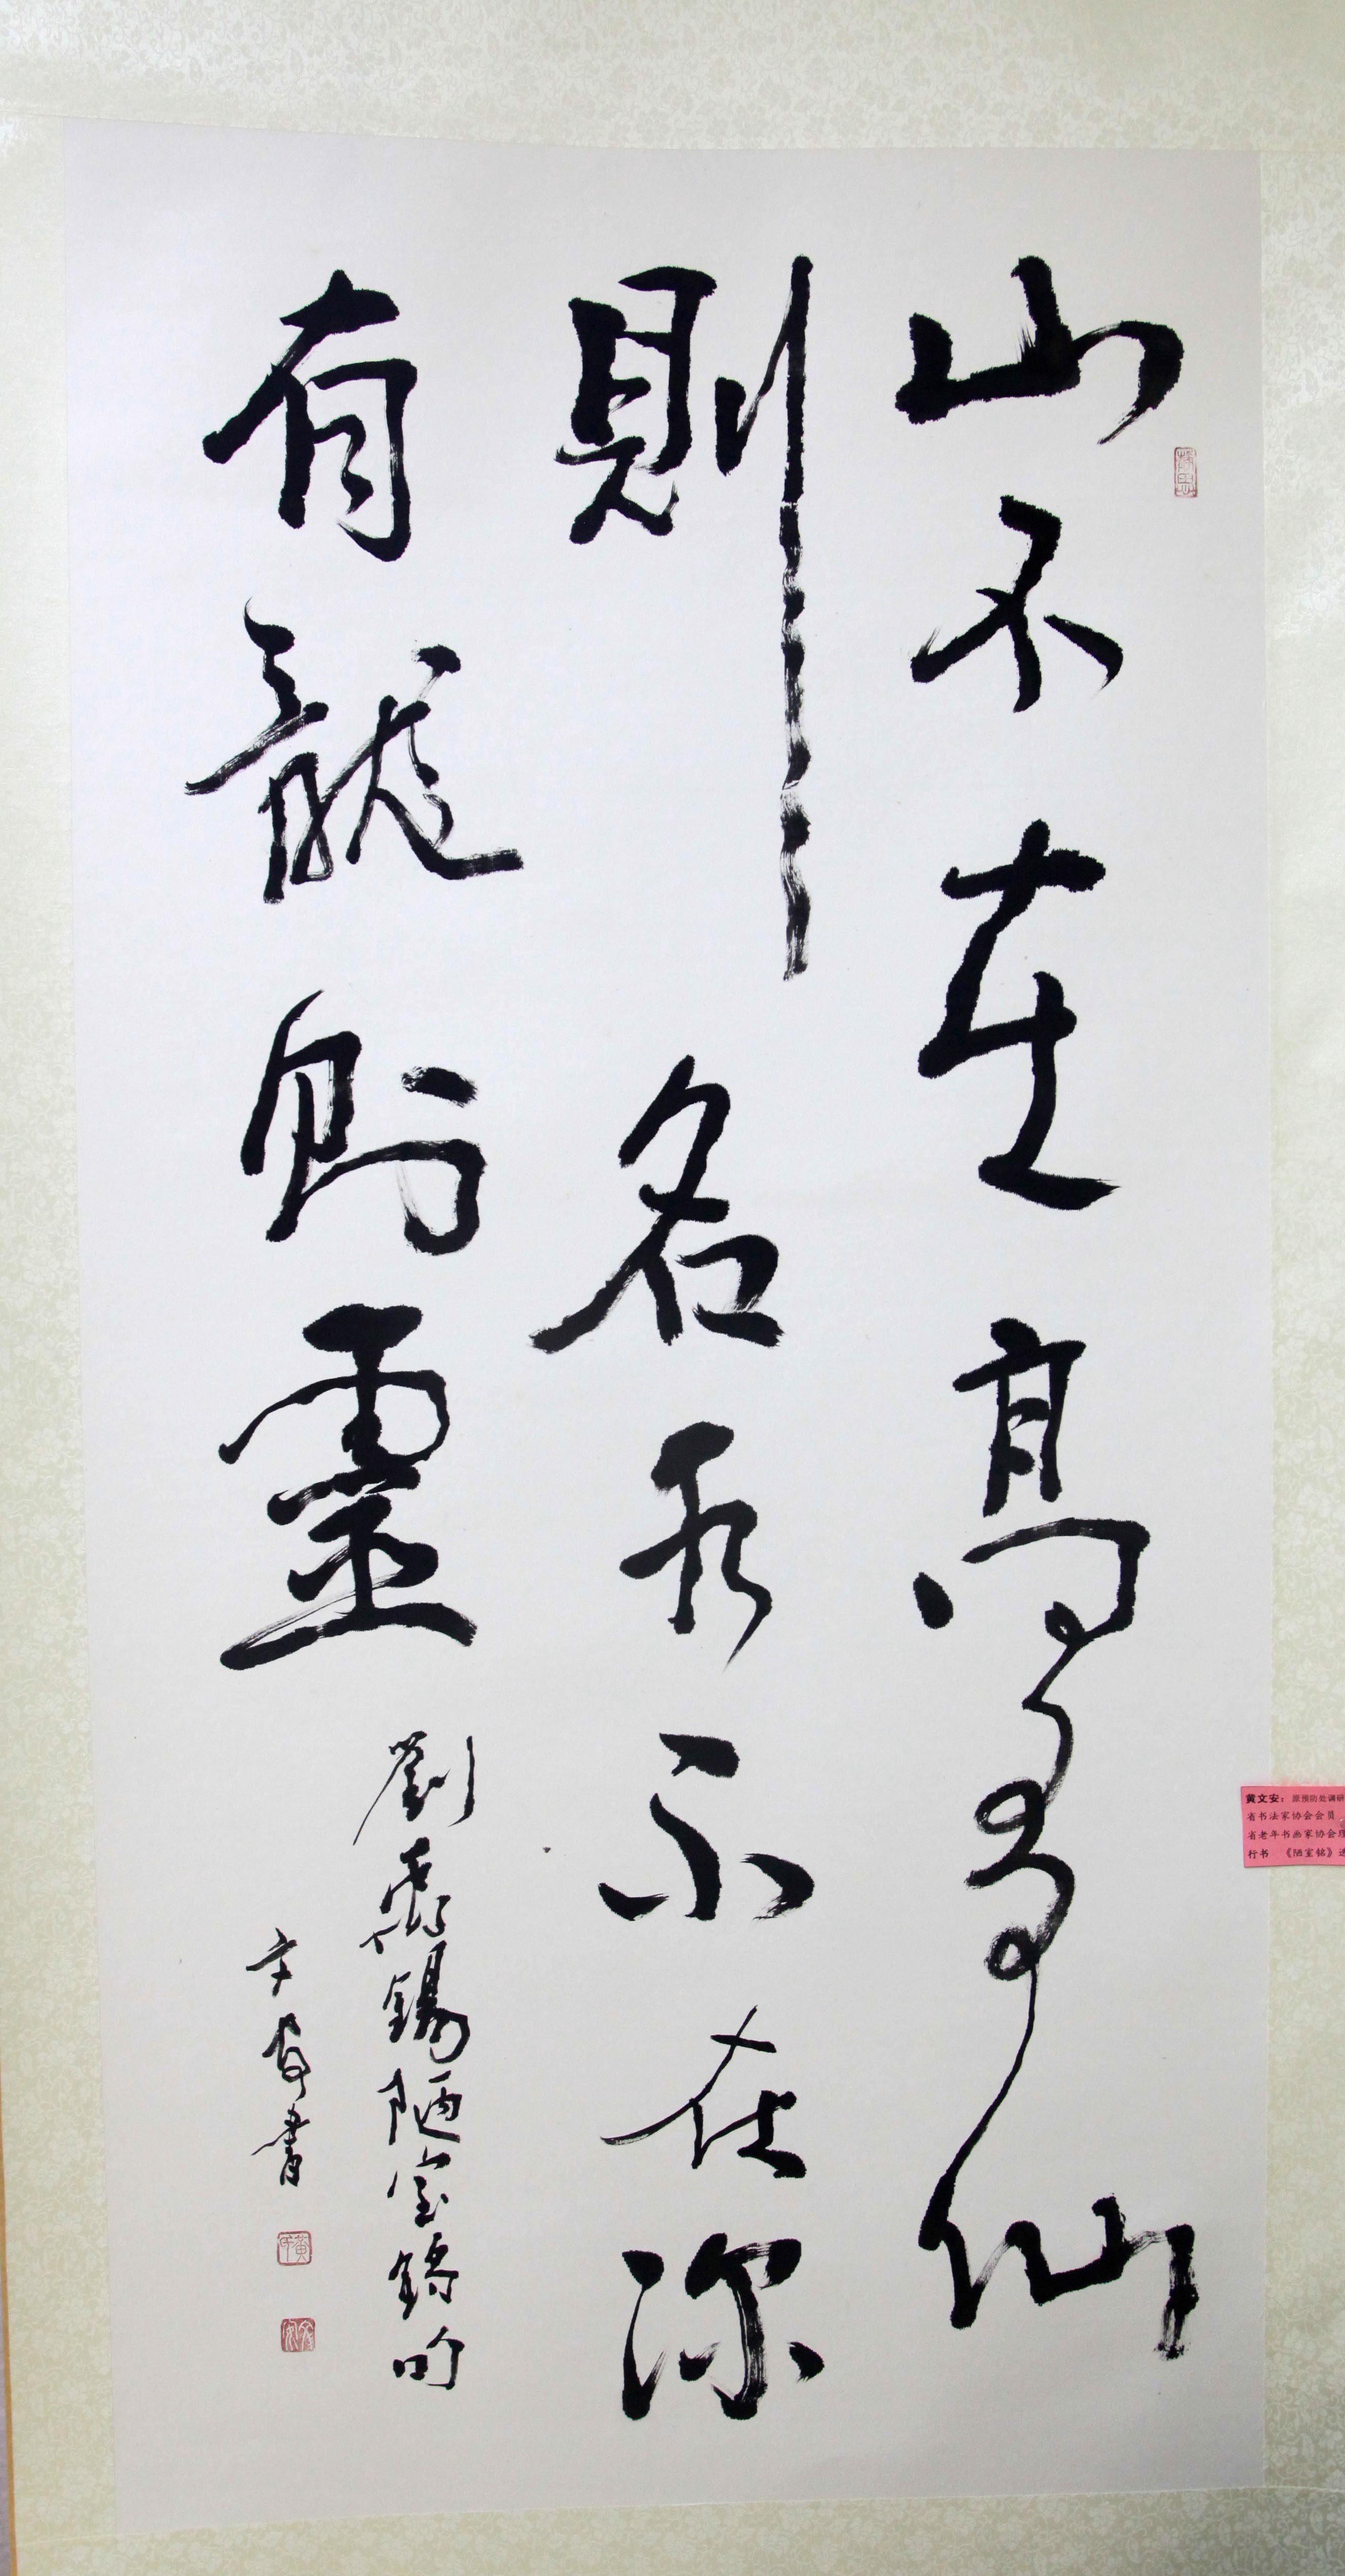 山不在高有仙
則名水不在深
有龍則靈
劉禹錫陋室銘句
文安書
黄印
文安
黄文安：原预防处调研
省书法家协会会员
省老年书画家协会理
行书 《陋室铭》选